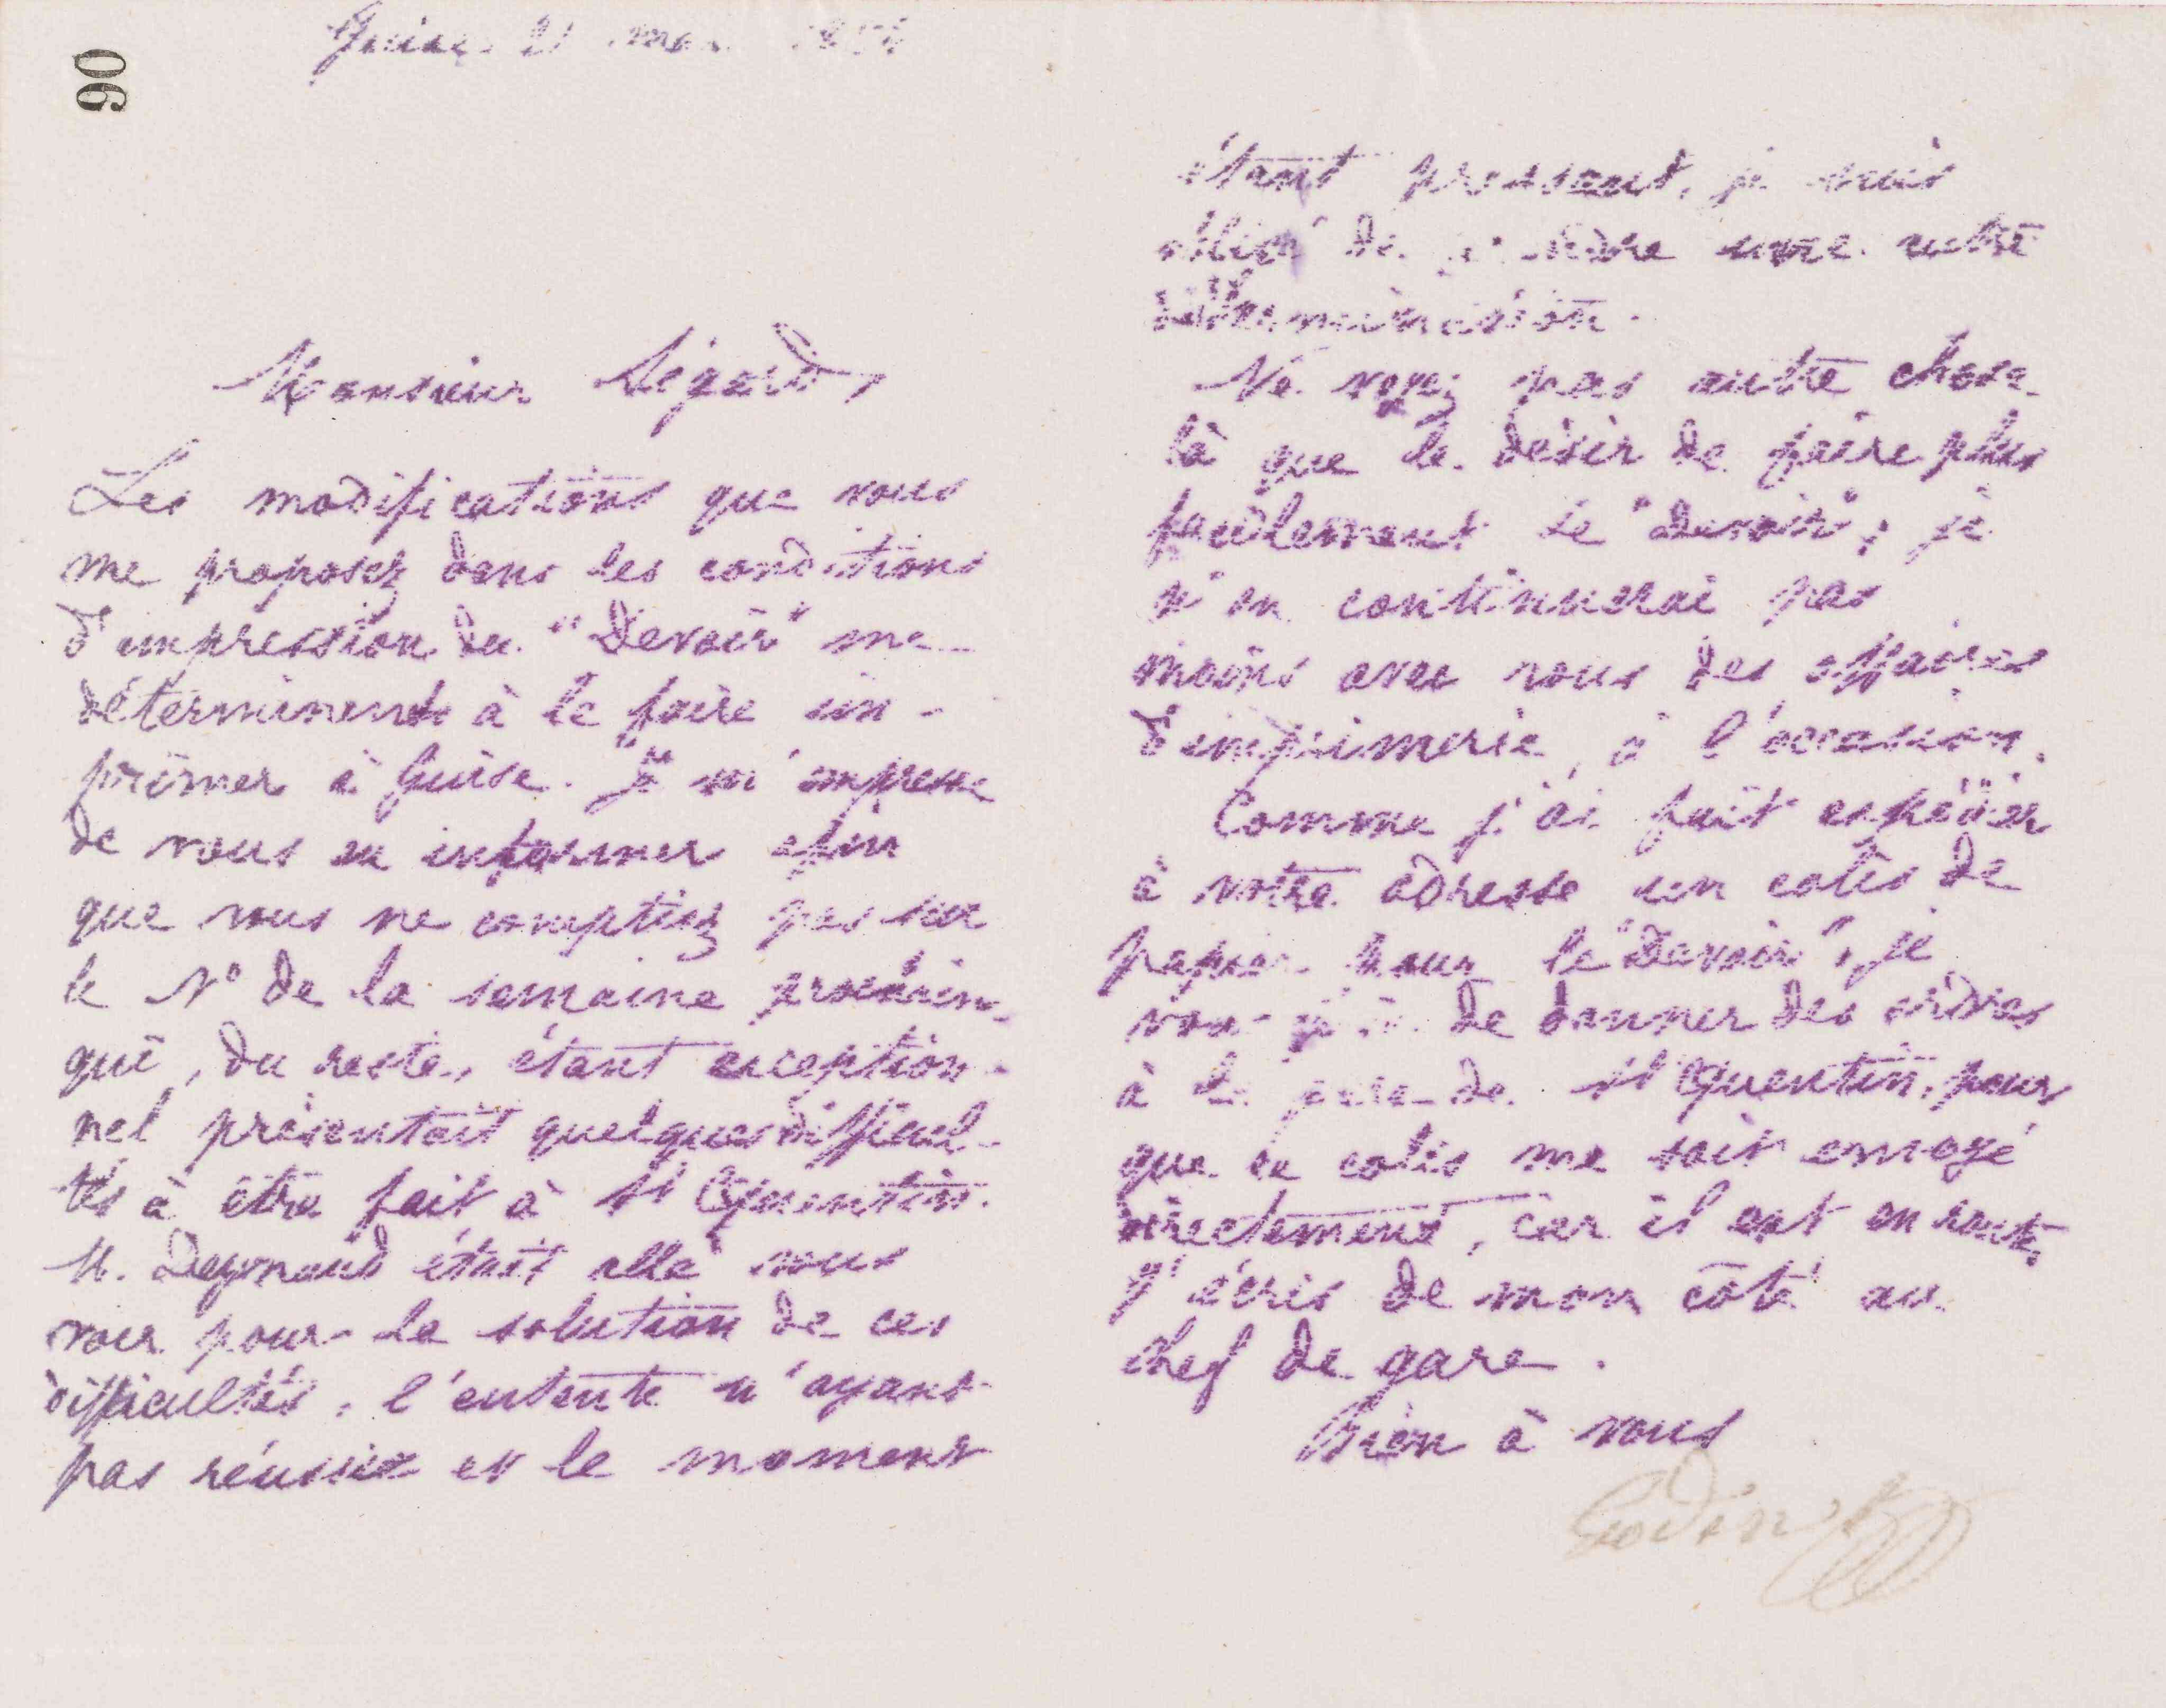 90
Guise
Monsieur Ségard,
Les modifications que vous
me proposez dans les conditions
d'impression du "Devoir" me
déterminent à le faire im-
primer à Guise. Je m'empresse
de vous en informer afin
que vous ne comptiez pas sur
le N° de la semaine prochain
qui, du reste, étant exception-
nel présentait quelques difficul-
tés à être fait à St Quentin.
M. Deynaud étant allé vous
voir pour la solution de ces
difficultés, l'entente n'ayant
pas réussie et le moment
étant pressant, je suis
obligé de prendre une autre
détermination.
Ne voyez pas autre chose
là que le désir de faire plus
facilement le "Devoir"; je
n'en continuerai pas
moins avec vous des affaires
d'imprimerie, à l'occasion.
Comme j'ai fait expédier
à votre adresse un colis de
papier pour le "Devoir", je
vous prie de donner des ordres
à la gare de St Quentin, pour
que ce colis me soit envoyé
directement, car il est en route.
J'écris de mon côté au
chef de gare.
Bien à vous
Godin